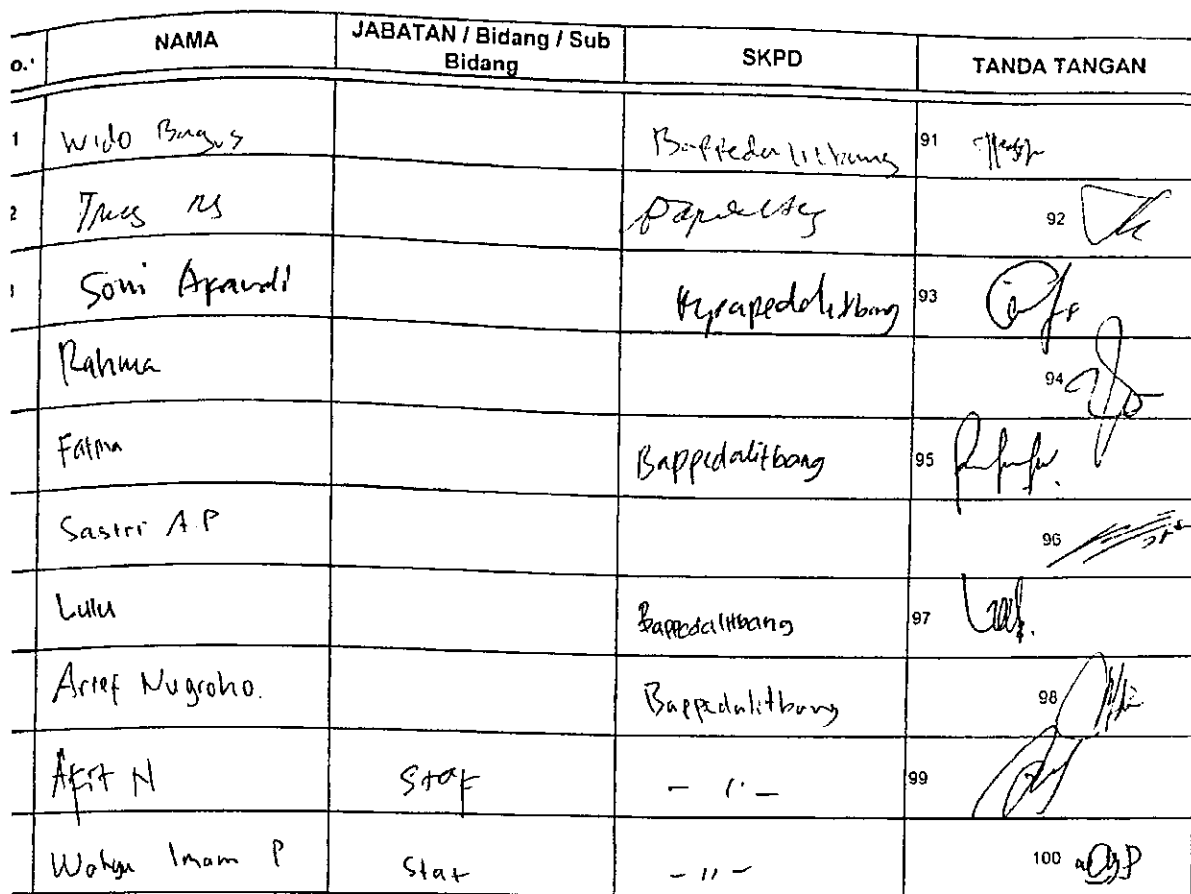 o. NAMA JABATAN / Bidang / Sub Bidang SKPD TANDA TANGAN
1 Wido Bagus Bappedalitbang 91
2 92
Soni Apandi 93
Rahma 94
Fatma Bappedalitbang 95
Sastri A.P 96
Lulu Bappedalitbang 97
Arief Nugroho. Bappedalitbang 98
Afit N Staf - 11 - 99
Wahyu Imam P Staf - 11 - 100